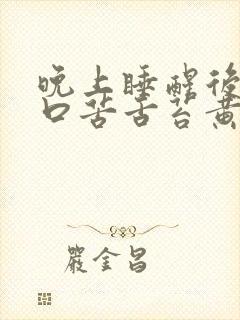 晚上睡醒後
口苦舌苔黄
嚴金昌